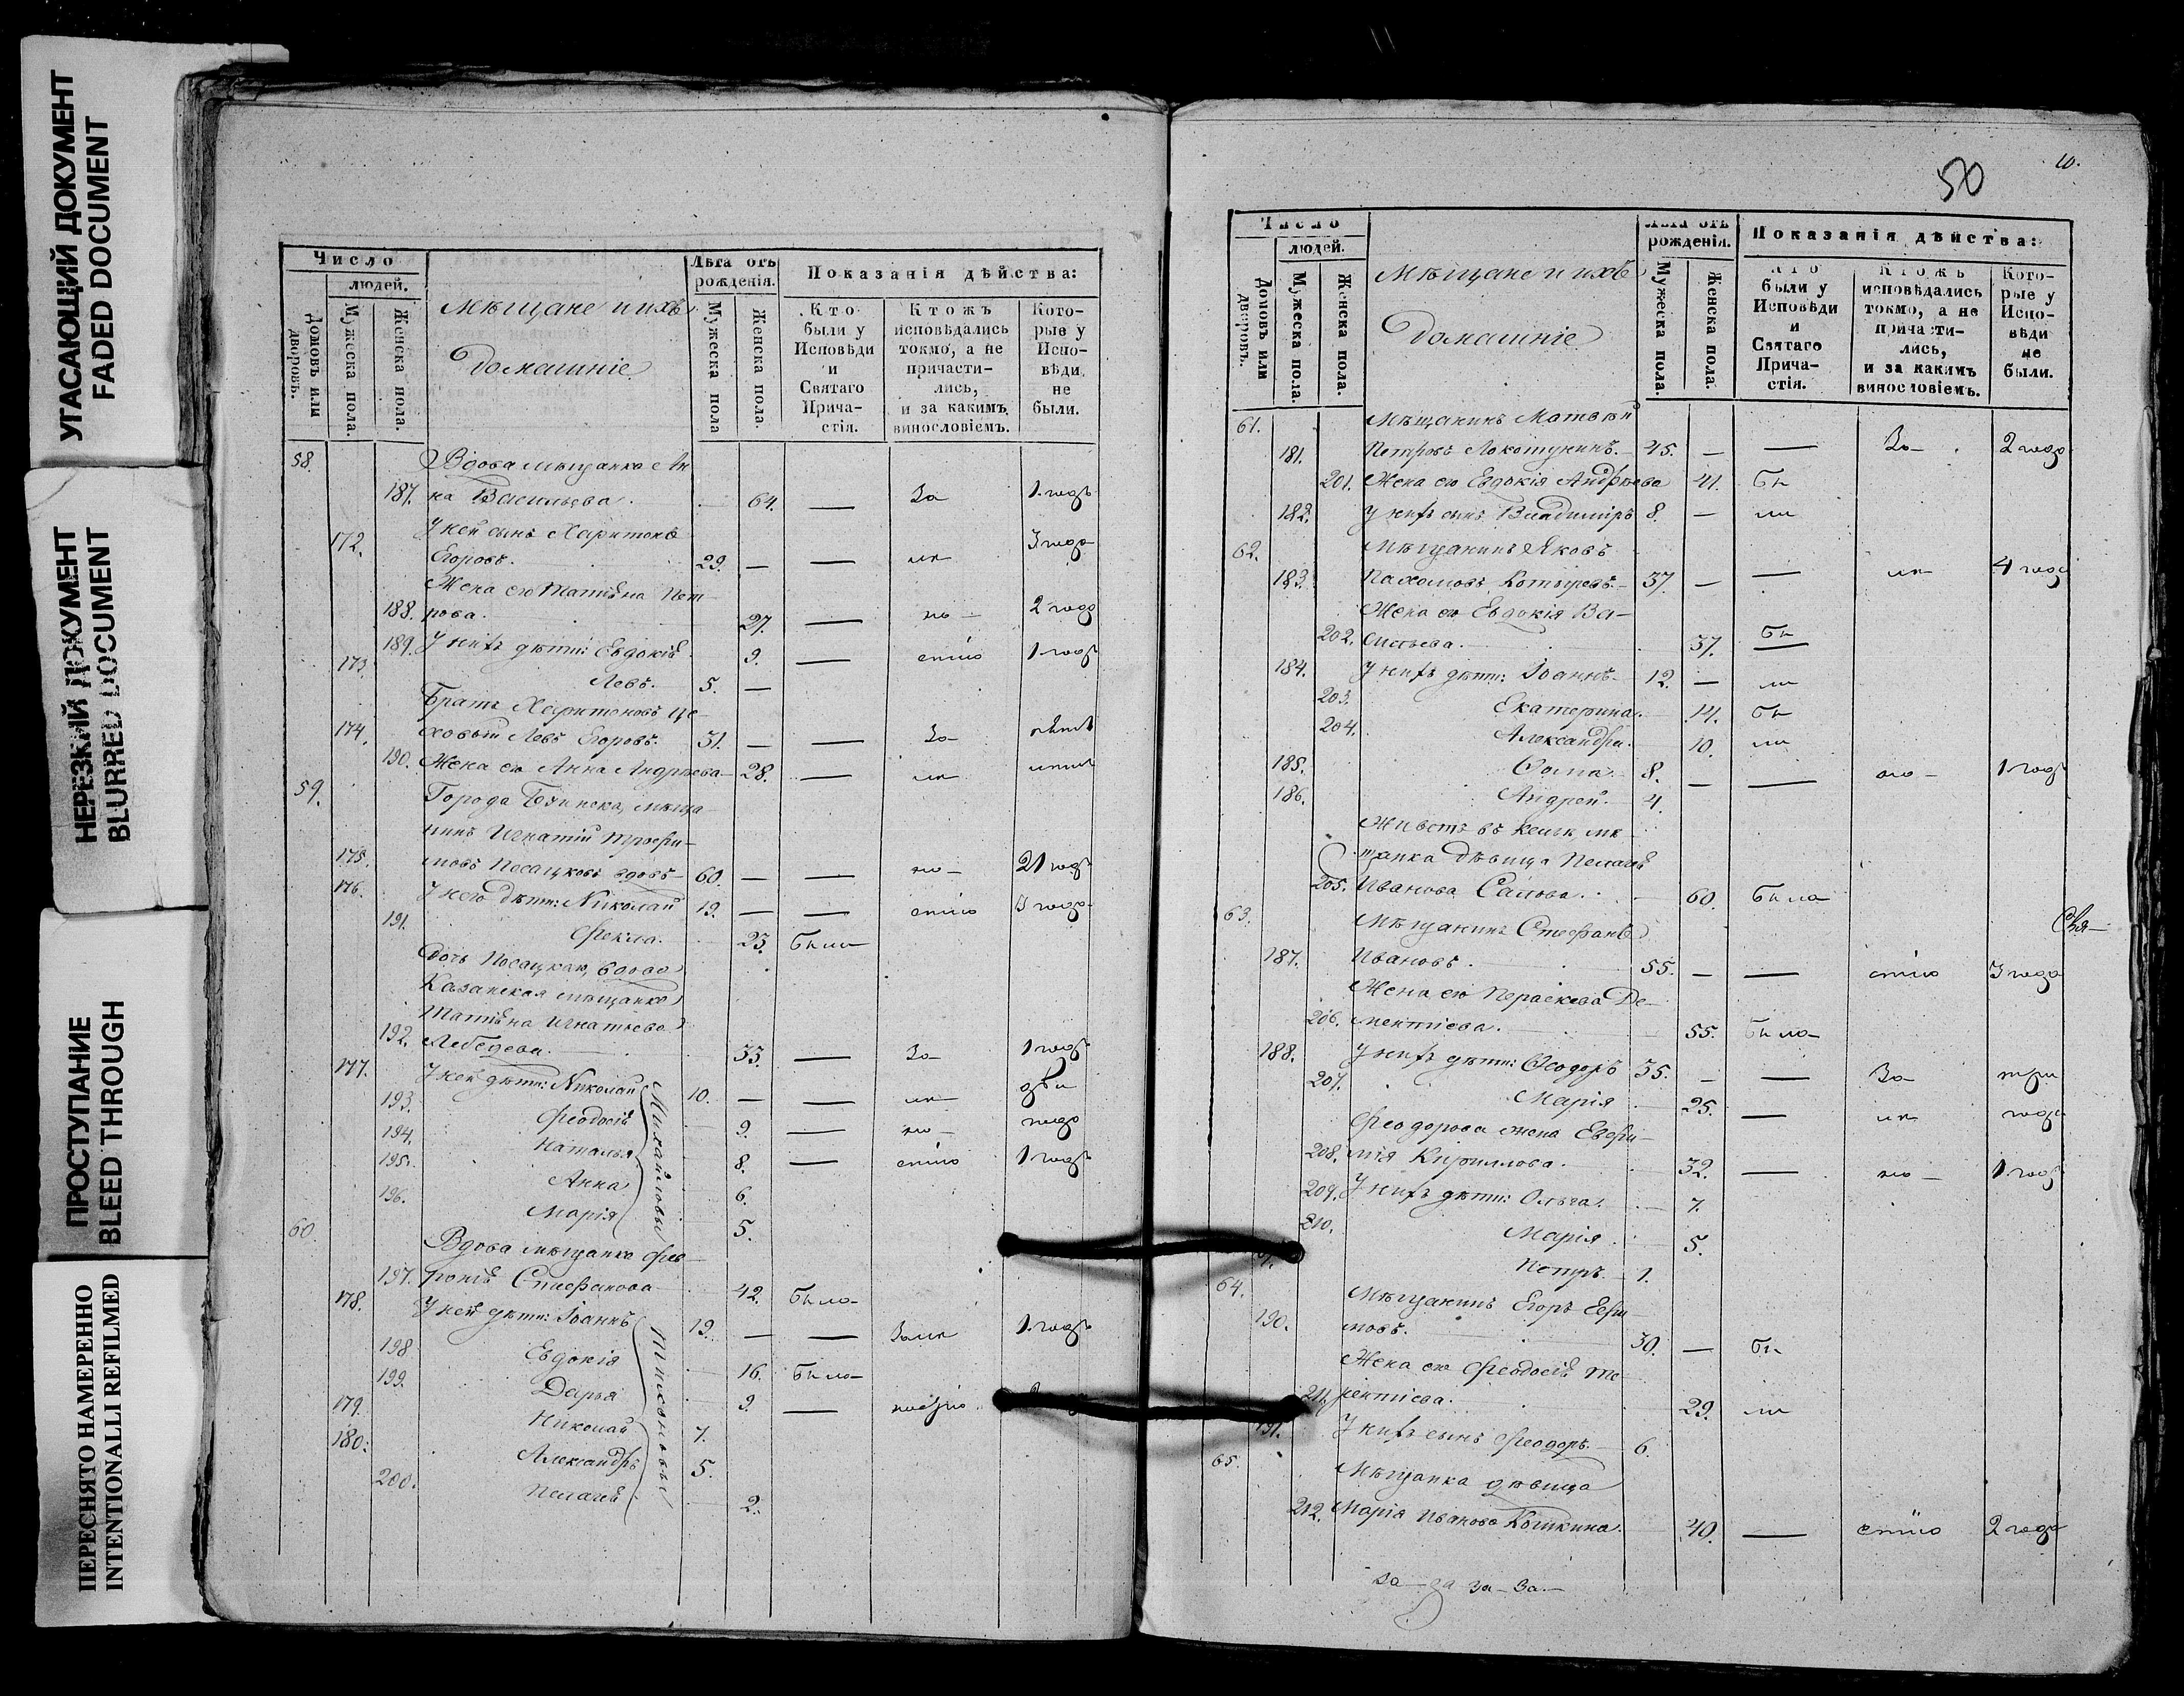 УГАСАЮЩИЙ ДОКУМЕНТ
FADED DOCUMENT
НЕРЕЗКИЙ ДОКУМЕНТ
BLURRED DOCUMENT
ПРОСТУПАНИЕ
BLEED THROUGH
ПЕРЕСНЯТО НАМЕРЕННО
INTENTIONALLI REFILMED
Число
людей.
Домовъ или дворовъ.
Мужеска пола.
Женска пола.
Мѣщане и ихъ
Домашніе
Лѣта отъ рожденія.
Мужеска пола
Женска пола.
Показанія дѣйства:
Кто были у Исповѣди и Святаго Причастія.
Ктожъ исповѣдались токмо, а не причастились, и за какимъ винословіемъ.
Которые у Исповѣди не были.
58. Вдова мѣщанка Ан
187. на Васильева. 64. — За 1. годъ
У ней сынъ Харитонъ
172. Егоровъ. 29. — — 3 года
Жена его Татіана Пет
188. рова. 27. — но — 2 года
189. У нихъ дѣти: Евдокія 9. — стію 1 годъ
173. Левъ. 5. —
Братъ Харитоновъ це-
174. ховый Левъ Егоровъ. 31. — — За лѣтъ
190. Жена его Анна Андреева 28. —
59. Города мѣща
нинъ Игнатій Трофи-
175. мовъ Посацковъ вдовъ 60. — — но — 21 годъ
176. У него дѣти: Николай 19. — — стію 3 года
191. Фекла. 23. Была
Дочь вдова
Казанская мѣщанка
Татіана Игнатьева
192. Лебедева. 33. — За 1 годъ
177. У ней дѣти: Николай 10. — — два
193. Феодосія 9. — но — года
194. Наталья 8. — стію 1 годъ
195. Анна 6.
196. Марія 5.
Михайловы
60. Вдова мѣщанка Фев
197. ронія Стефанова 42. Была
178. У ней дѣти: Іоаннъ 19. — — 1. годъ
198 Евдокія 16. Была
199. Дарья 9. —
179. Николай 7.
180. Александръ 5.
200. Пелагія 2.
Тихоновы
50
10.
Число
людей.
Домовъ или дворовъ.
Мужеска пола.
Женска пола.
Мѣщане и ихъ
Домашніе
Лѣта отъ рожденія.
Мужеска пола.
Женска пола.
Показанія дѣйства:
Кто были у Исповѣди и Святаго Причастія.
Ктожъ исповѣдались токмо, а не причастились, и за какимъ винословіемъ.
Которые у Исповѣди не были.
61. Мѣщанинъ Матвѣй
181. Петровъ Локотунинъ. 45. — — За 2 года
201. Жена его Евдокія Андреева 41. Бы
182. У нихъ сынъ Владиміръ 8. — ли
62. Мѣщанинъ Яковъ
183. Пахомовъ Котыревъ. 37. — — 4 года
Жена его Евдокія Ва-
202. сильева. 37. Бы
184. У нихъ дѣти: Іоаннъ 12. — ли
203. Екатерина. 14. Бы
204. Александра. 10. ли
185. Фома. 8. — — 1 годъ
186. Андрей. 4.
Живетъ въ кельи мѣ
щанка дѣвица Пелагія
205. Иванова Салова. 60. Была
63. Мѣщанинъ Стефанъ
187. Ивановъ. 55. — — стію 3 года
Жена его Параскева Де-
206. ментіева. 55. Была
188. У нихъ дѣти: Феодоръ 35. — — За три
207. Марія 25. — года
Феодорова жена Евфи-
208. мія Кириллова. 32. — но — 1 годъ
209. У нихъ дѣти: Ольга. 7.
210. Марія 5.
Петръ. 1.
64. Мѣщанинъ Егоръ Ефи
190. мовъ. 30. — Бы
Жена его Феодосія Те-
211. рентіева. 29. ли
191. У нихъ сынъ Феодоръ. 6.
65. Мѣщанка дѣвица
212. Марія Иванова Кошкина. 40. — стію 2 года
за — за за — за —